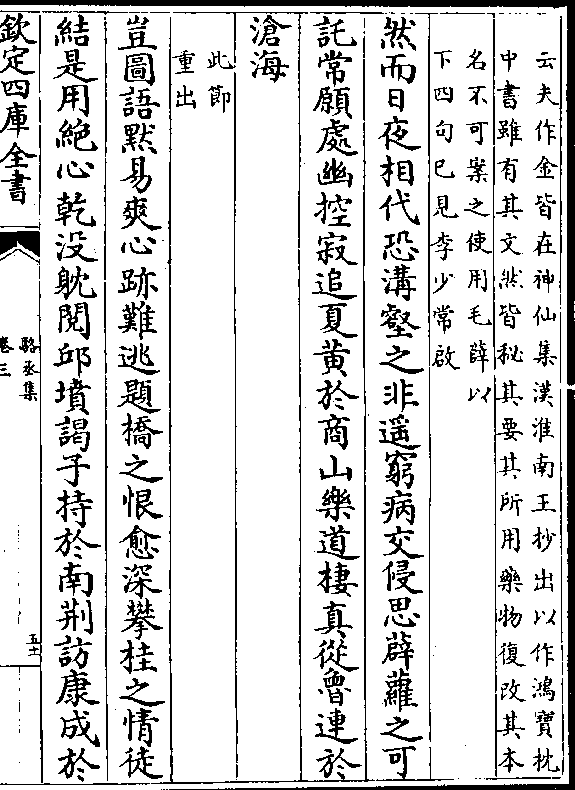 云夫作金皆在神仙集漢淮南王抄出以作鴻寶枕
中書雖有其文然皆秘其要其所用藥物復改其本
名不可案之使用毛薛以
下四句已見李少常啟
然而日夜相代恐溝壑之非遥窮病交侵思薜蘿之可
託常願處幽控寂追夏黄於商山樂道棲真從魯連於
滄海
此節
重出
豈圖語黙易爽心跡難逃題橋之恨愈深攀桂之情徒
結是用絶心乾没躭閲邱墳謁子持於南荆訪康成於
欽定四庫全書
駱丞集
卷三
五十